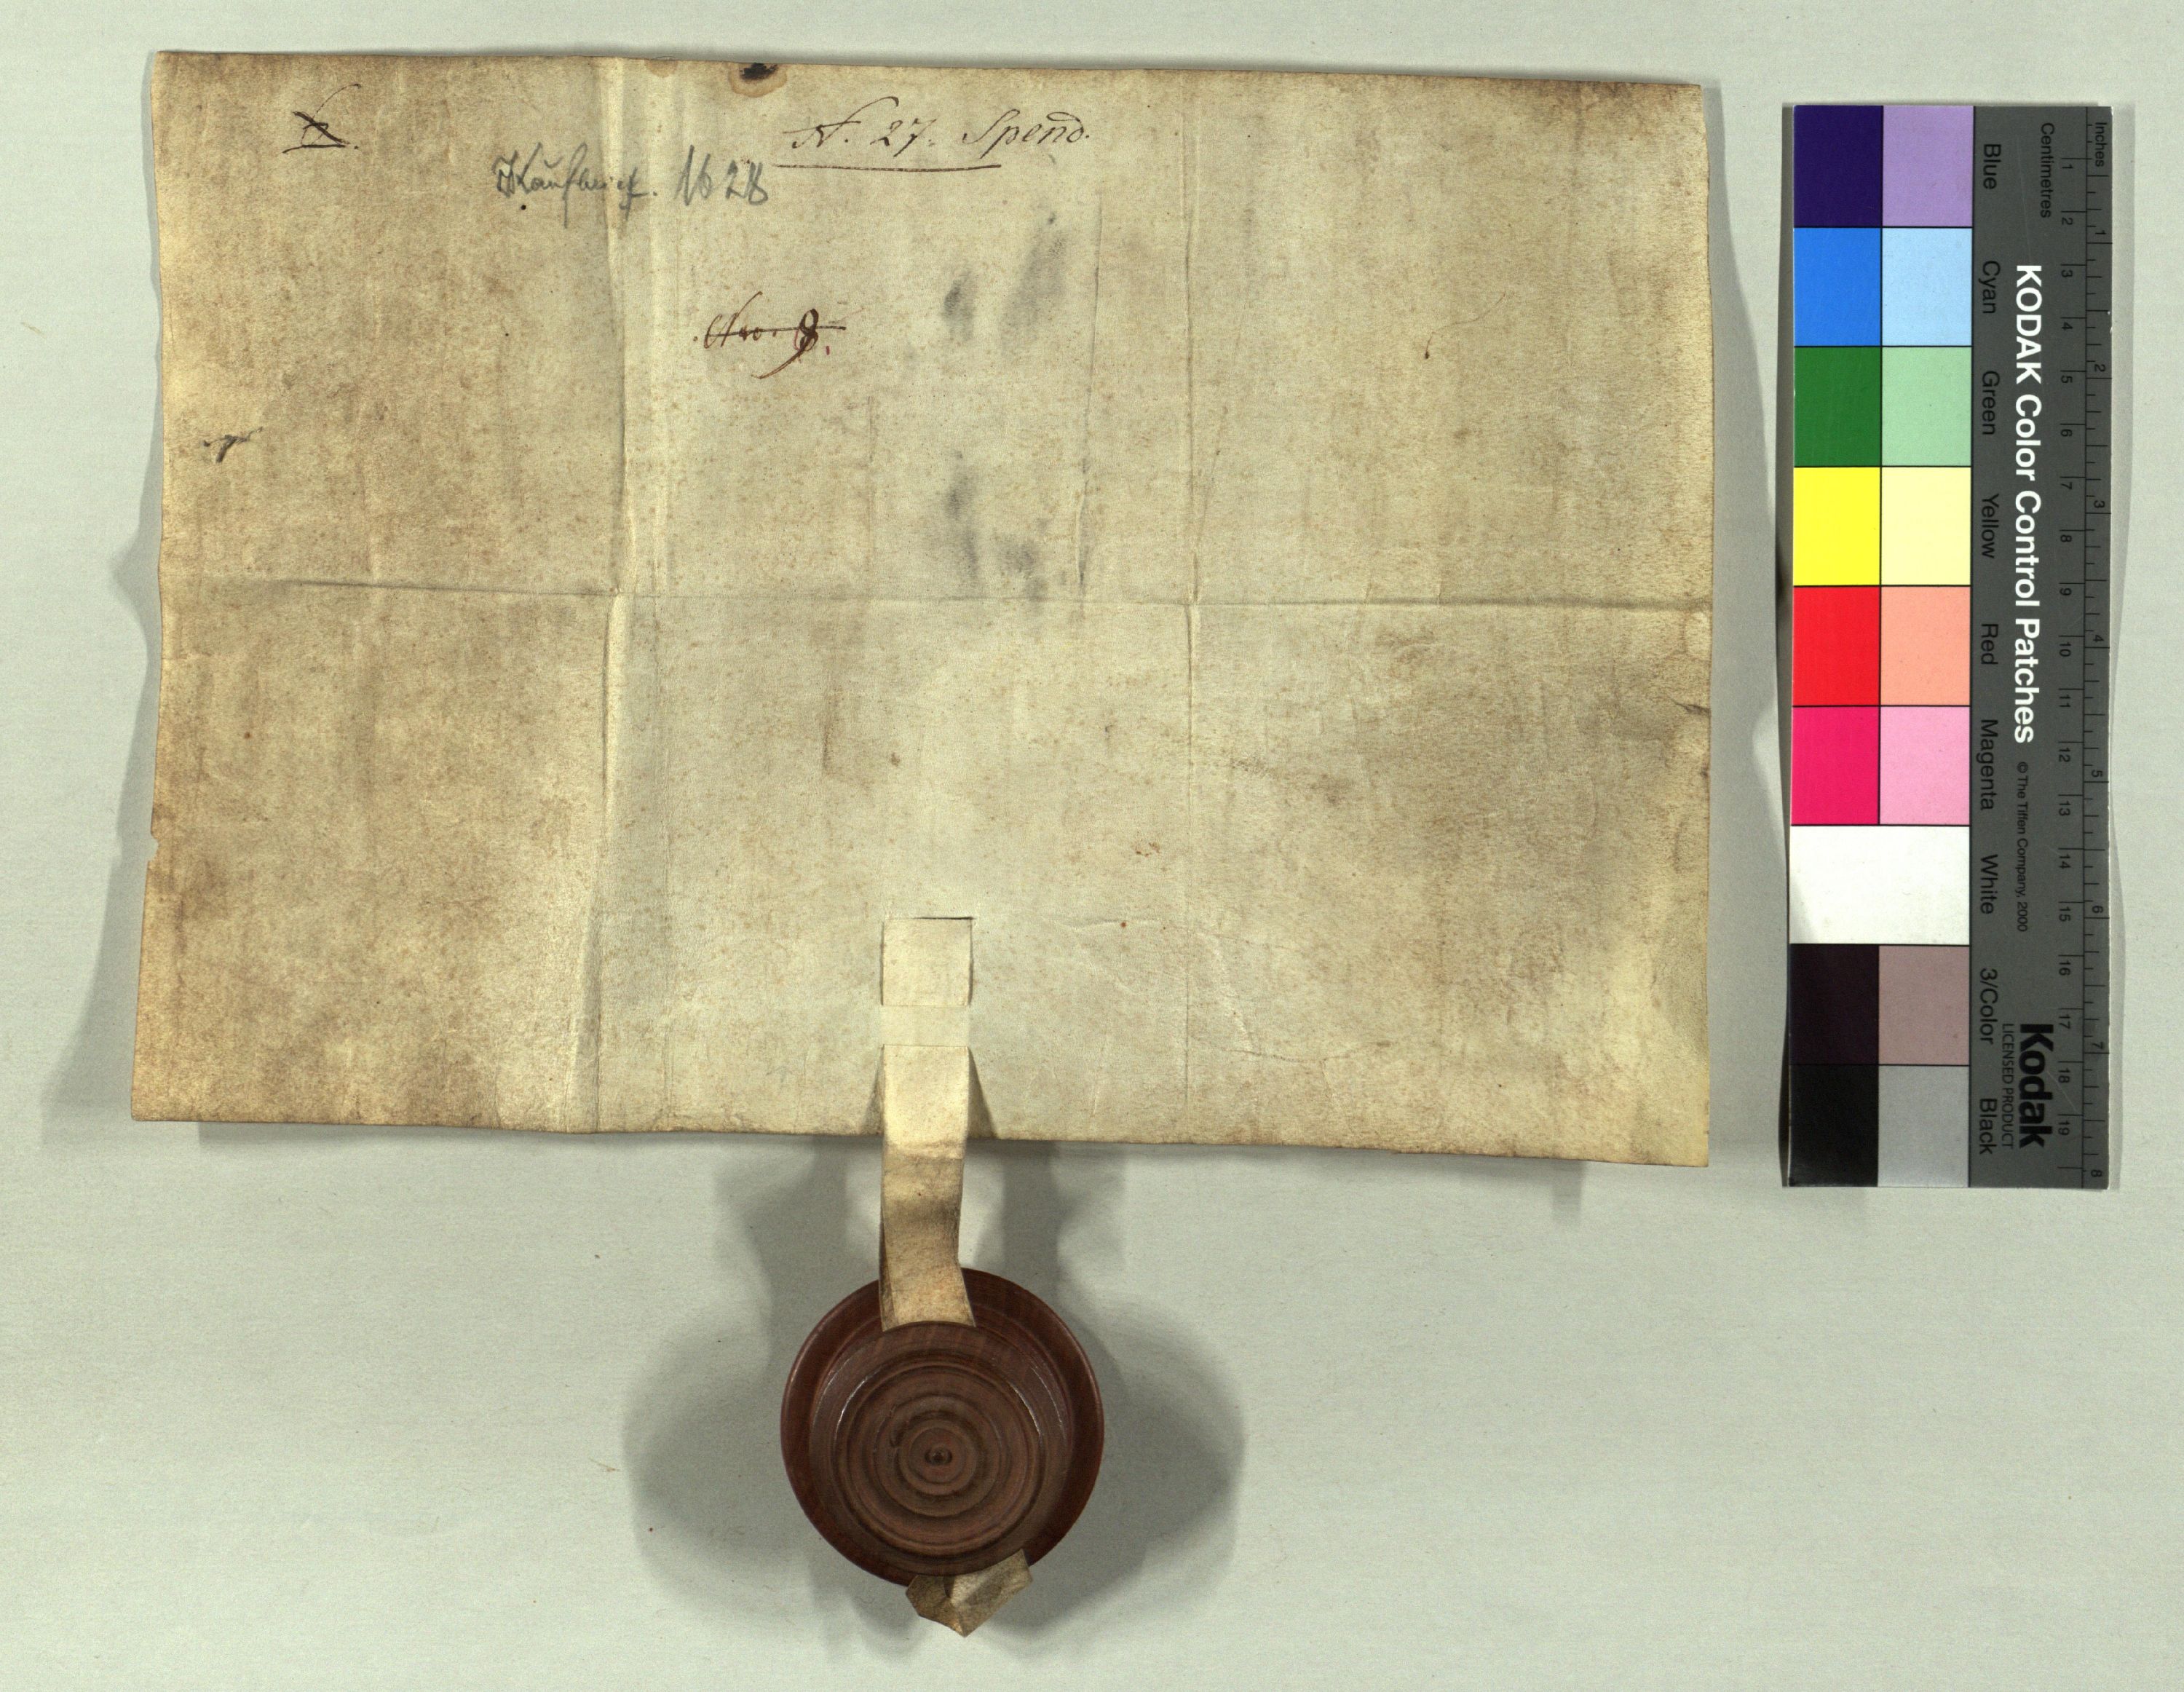 N. 27. Spend.
Kaufbrief. 1628
Nro. 9.
Inches
Centimetres
1 2 3 4 5 6 7 8
1 2 3 4 5 6 7 8 9 10 11 12 13 14 15 16 17 18 19
KODAK Color Control Patches © The Tiffen Company, 2000
Kodak
LICENSED PRODUCT
Blue Cyan Green Yellow Red Magenta White 3/Color Black